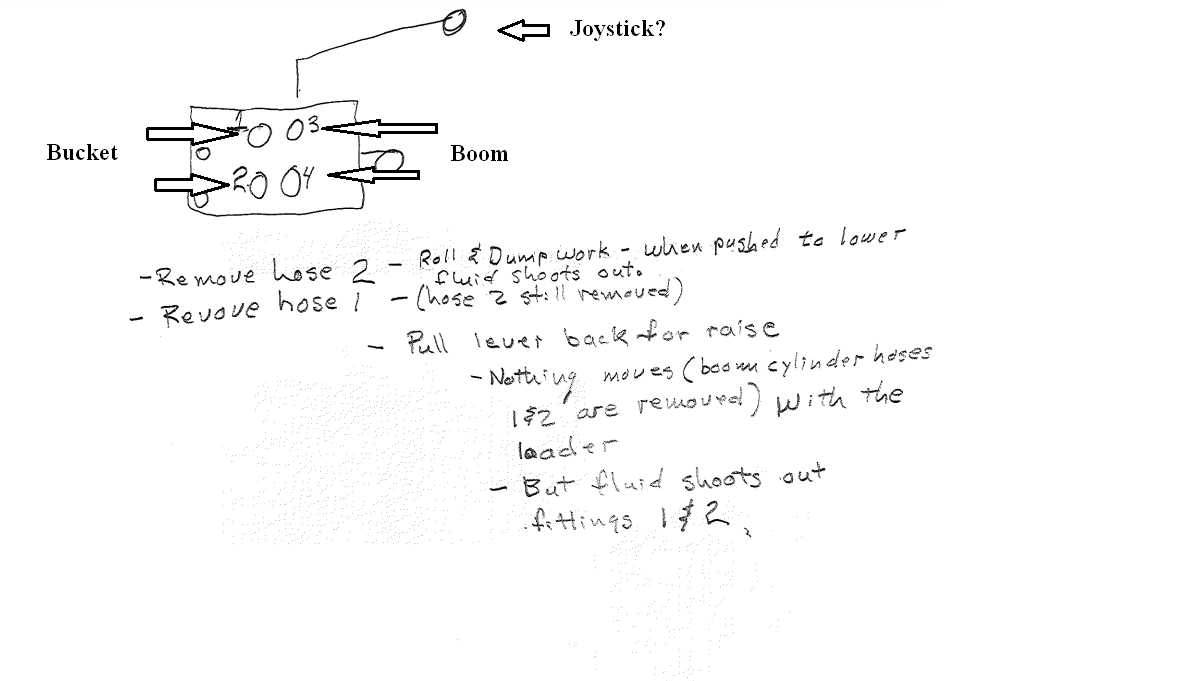 Joystick?
1 3
Bucket
Boom
2 4
- Remove hose 2 - Roll & Dump work - when pushed to lower
fluid shoots out.
- Revove hose 1 - (hose 2 still removed)
- Pull lever back for raise
- Nothing moves (boom cylinder hoses
1 & 2 are removed) with the
loader
- But fluid shoots out
fittings 1 & 2.